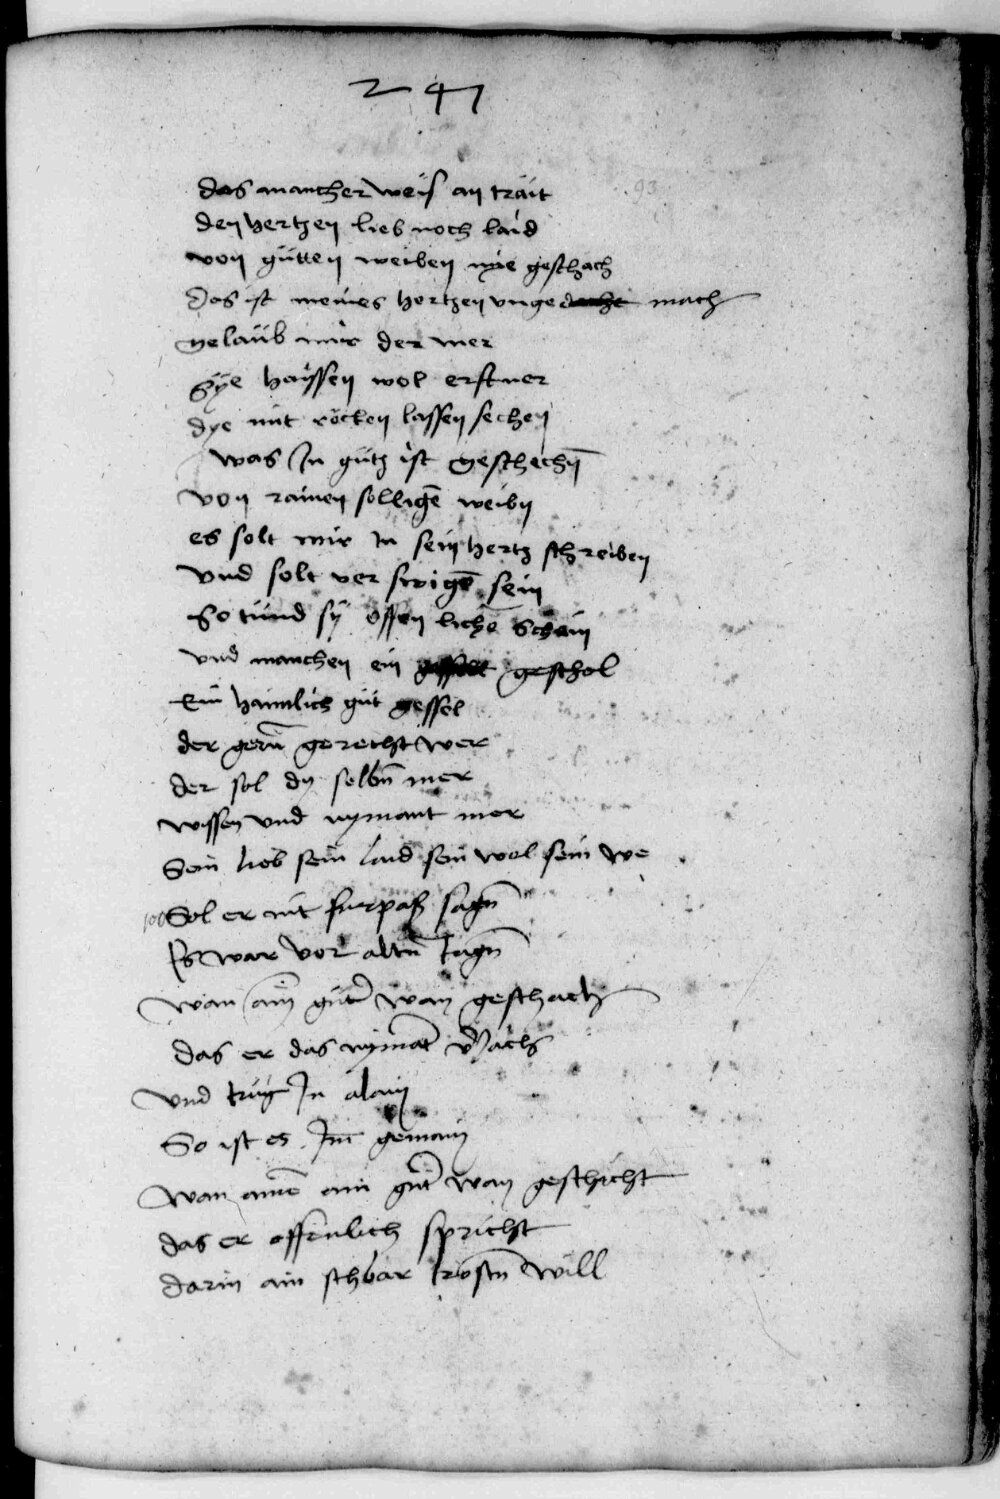 247
93
das mancher weis an trait
den hertzen lieb noch laid
von gütten weiben nye geschach
das ist meines hertzen ungedacht mach
gelaub mir der mer
Sye haissen wol erstner
dye mit röcken lassen sechen
was In gütz ist geschechñ
von rainen sellige weibn
es solt mir in sein hertz schreiben
vnd solt ver swigē sein
So tünd sy offen lichē Schein
vnd manchen ein geschol
Ein haimlich güt gessel
der gern̄ gerecht wer
der sol dy selbn̄ mer
wissen vnd nymant mer
Sein lieb sein laid sein wol sein we
100 Sol er nit furpas sagn̄
Es war vor altn̄ tagn̄
wan aim güt wan geschach
das er das nymāt
vnd trüg In alain
So ist es Im̄ gemain
wan aime ain gut wan geschicht
das er offenlich spricht
darin ain schbar trostn̄ will